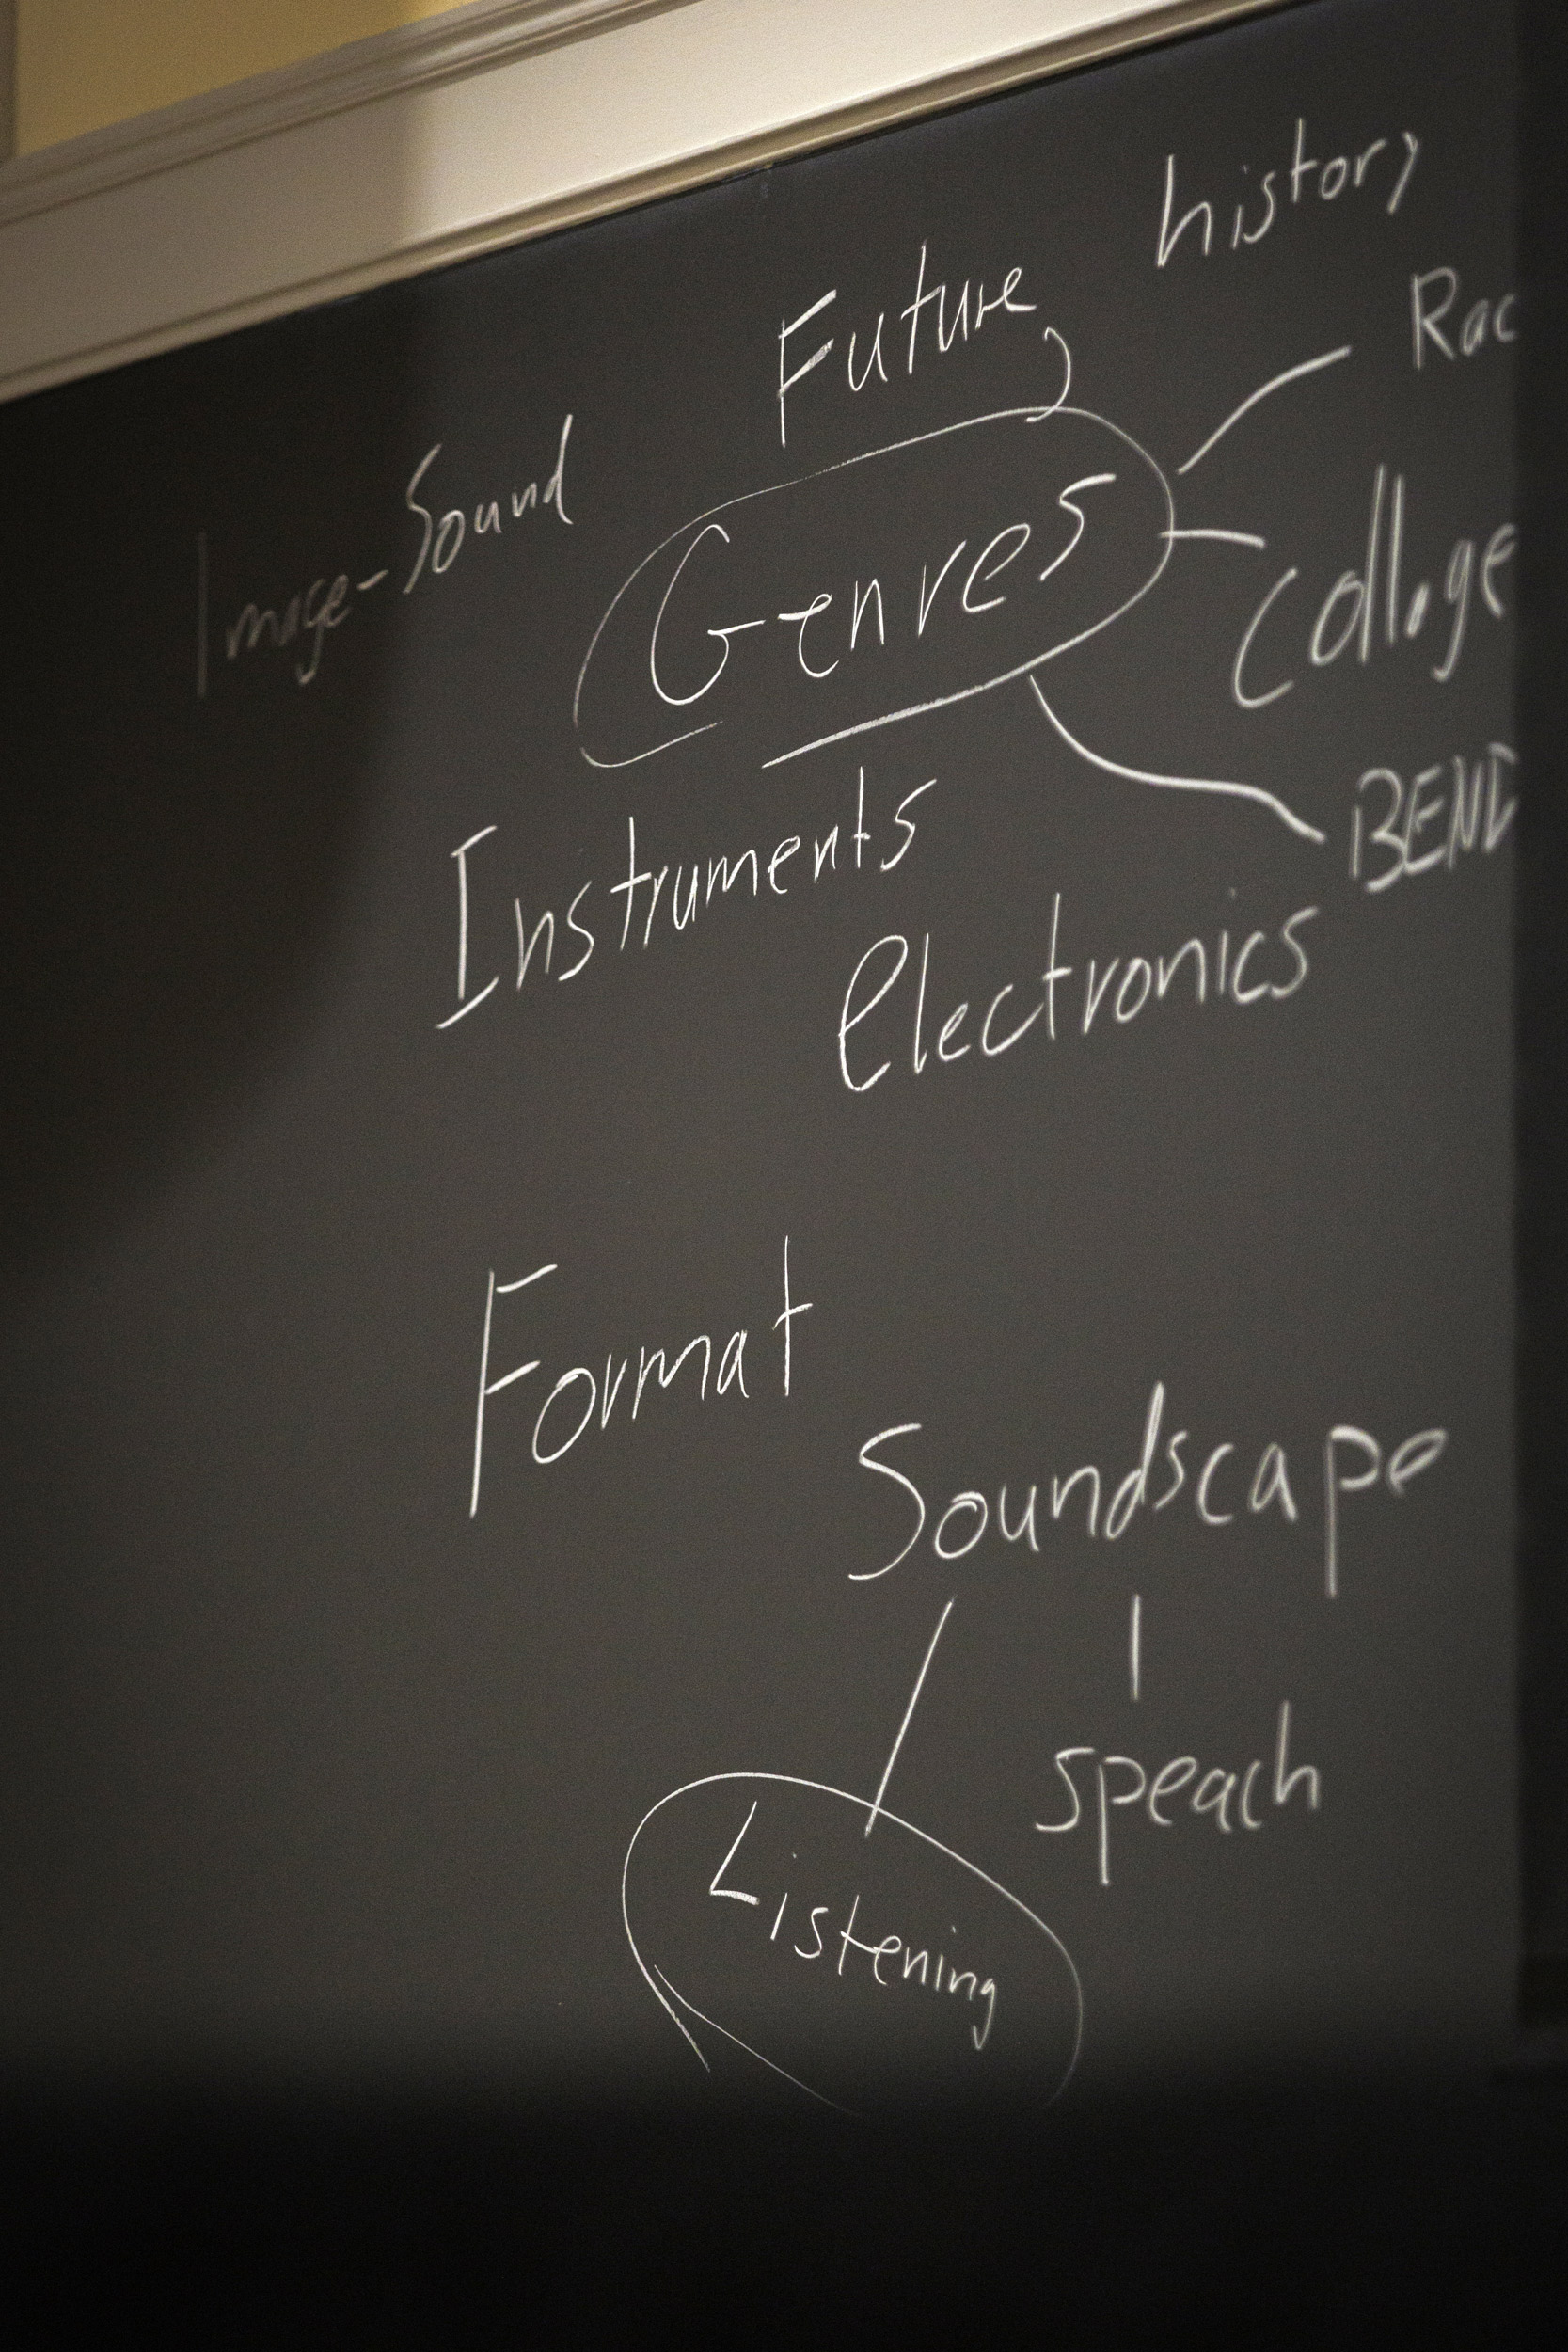 history
Future
Rac
Image-Sound
Genres
Collage
BEND
Instruments
Electronics
Format
Soundscape
speach
Listening